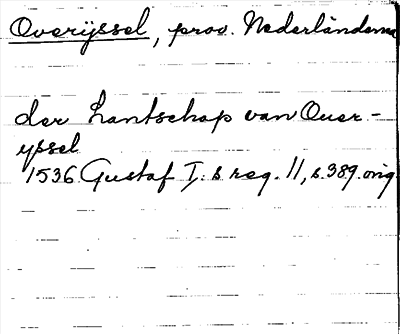 Overijssel, prov. Nederländerna
der Lantschap van Ouer-
yssel
1536 Gustaf I:s reg. 11, s. 389. orig.